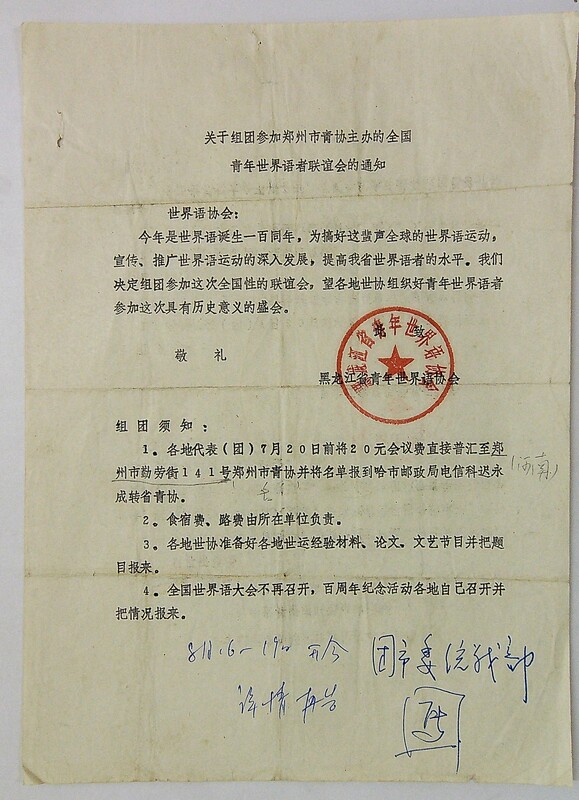 关于组团参加郑州市青协主办的全国
青年世界语者联谊会的通知
世界语协会：
今年是世界语诞生一百周年，为搞好这蜚声全球的世界语运动，
宣传、推广世界语运动的深入发展，提高我省世界语者的水平。我们
决定组团参加这次全国性的联谊会，望各地世协组织好青年世界语者
参加这次具有历史意义的盛会。
敬 礼
黑龙江省青年世界语协会
黑龙江省青年世界语协会
组团须知：
1。各地代表（团）7月20日前将20元会议费直接普汇至郑
州市勤劳街141号郑州市青协并将名单报到哈市邮政局电信科迟永
（河南）
成转省青协。
2。食宿费、路费由所在单位负责。
3。各地世协准备好各地世运经验材料、论文、文艺节目并把题
目报来。
4。全国世界语大会不再召开，百周年纪念活动各地自己召开并
把情况报来。
8月16－19日 开会 团市委统战部
详情再告